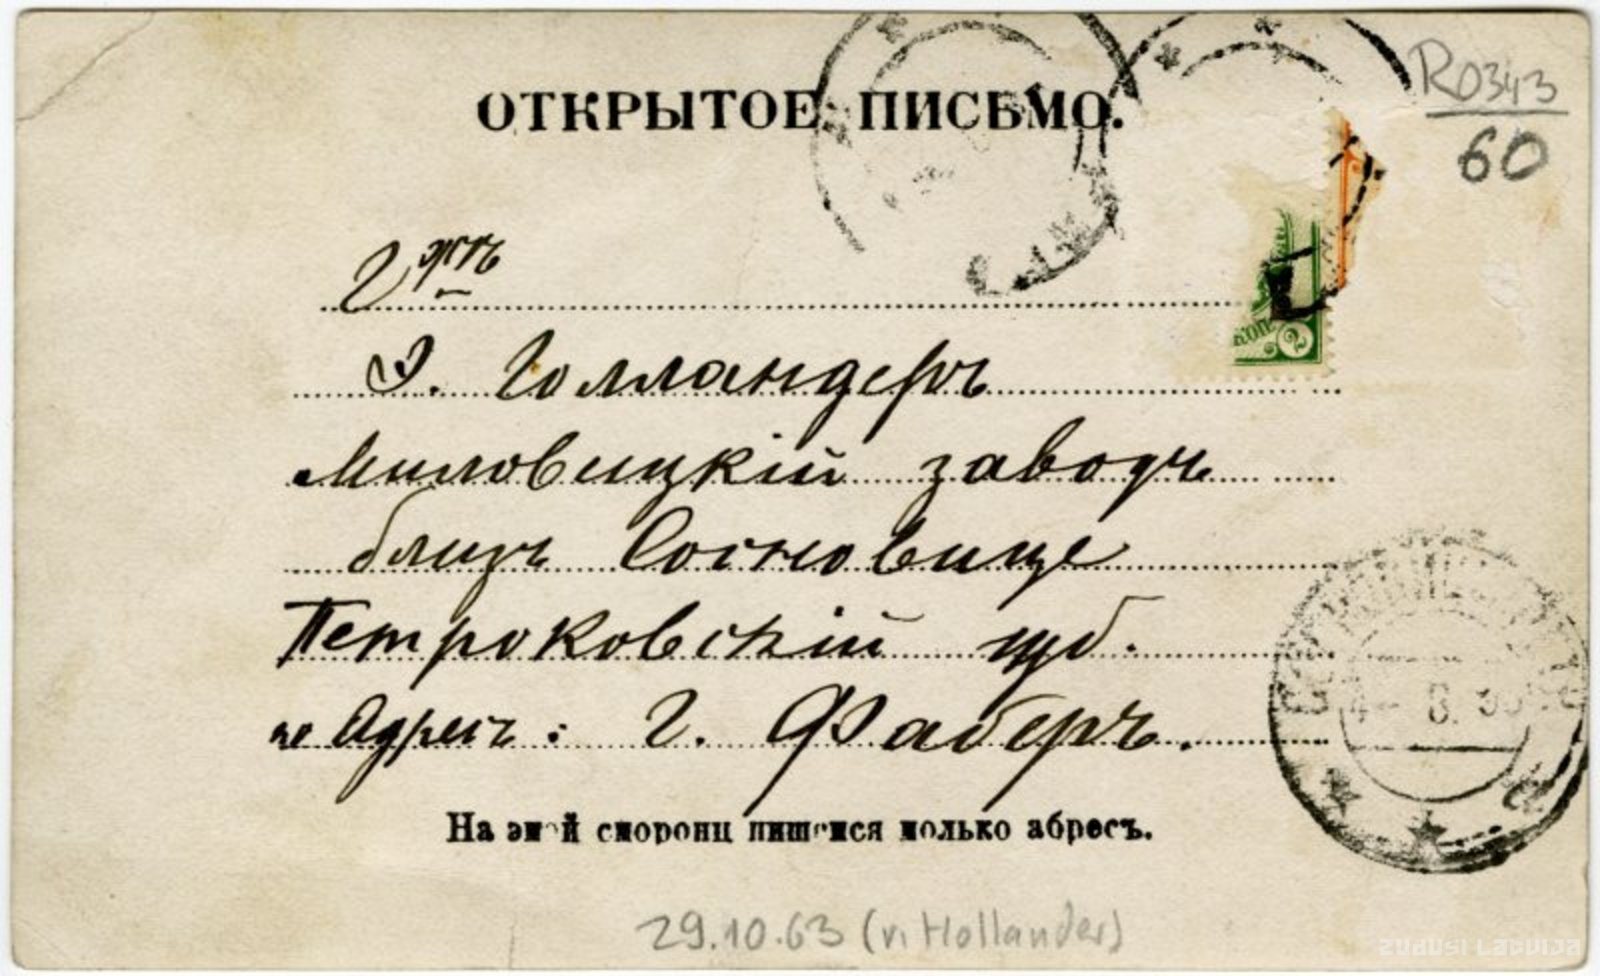 ОТКРЫТОЕ ПИСЬМО.
R0343
60
Г-жѣ
Э. Голландеръ
КОП. 2
Миловицкій заводъ
близъ Сосновице
Петроковскій губ.
по Адресъ: Г. Фаберъ.
4 - 8.
На этой сторонц пишется только адресъ.
29.10.63 (v. Hollander)
ZUDUSI LATVIJA